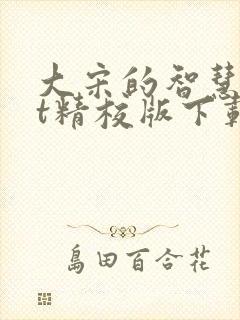 大宋的智慧
t精校版下载
島田百合花